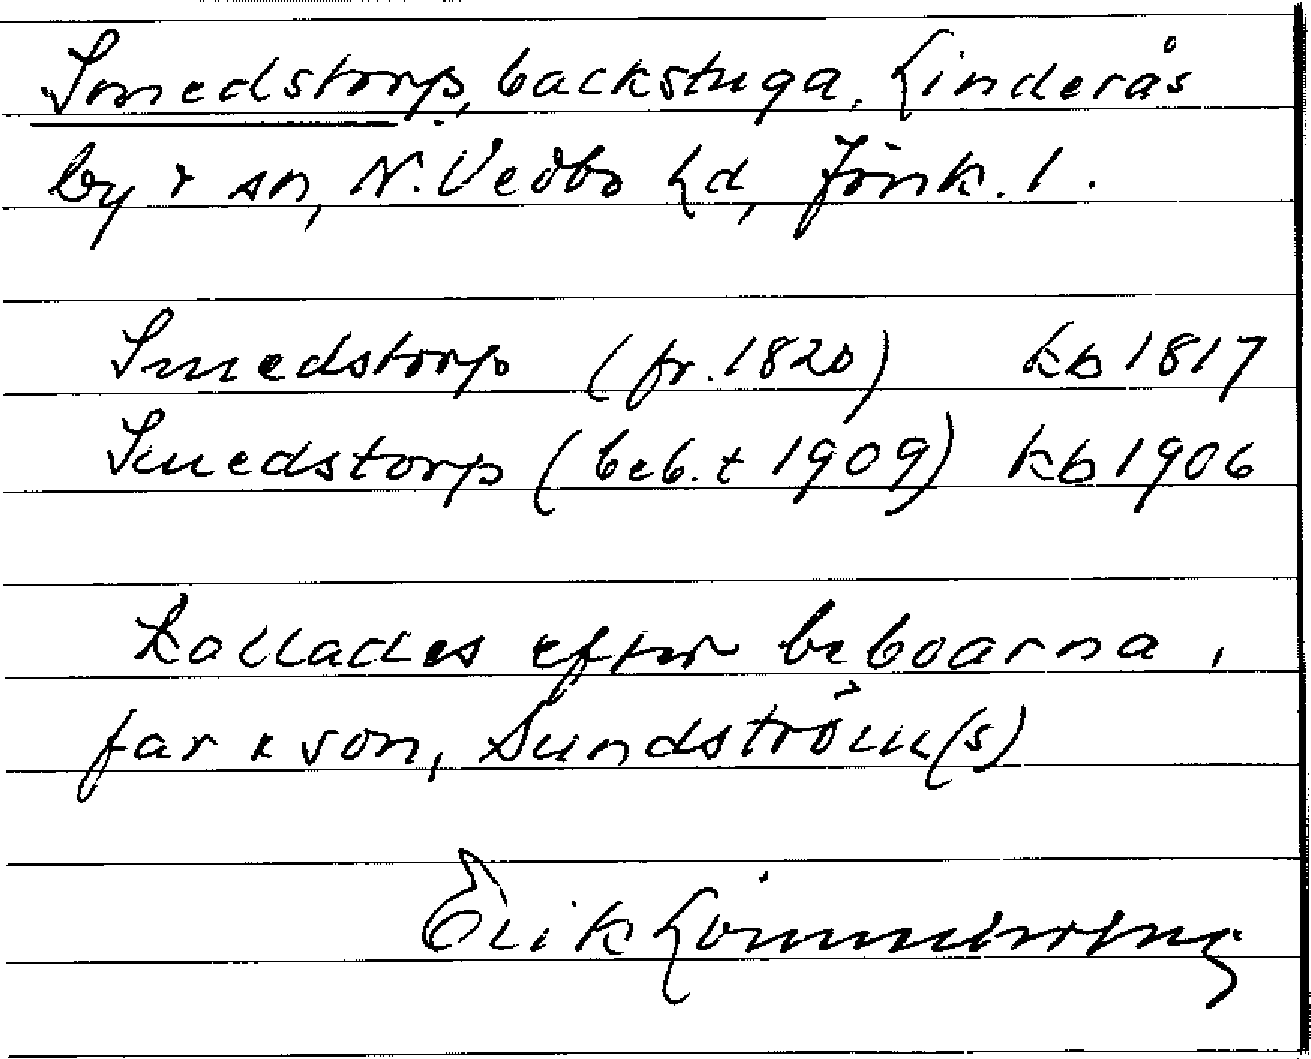 Smedstorp, backstuga, Linderås
by & sn, N. Vedbo hd, Jönk. l.
Smedstorp (fr. 1820) kb 1817
Smedstorp (beb. t 1909) kb 1906
Kallades efter beboarna,
far & son, Sundström(s)
Erik